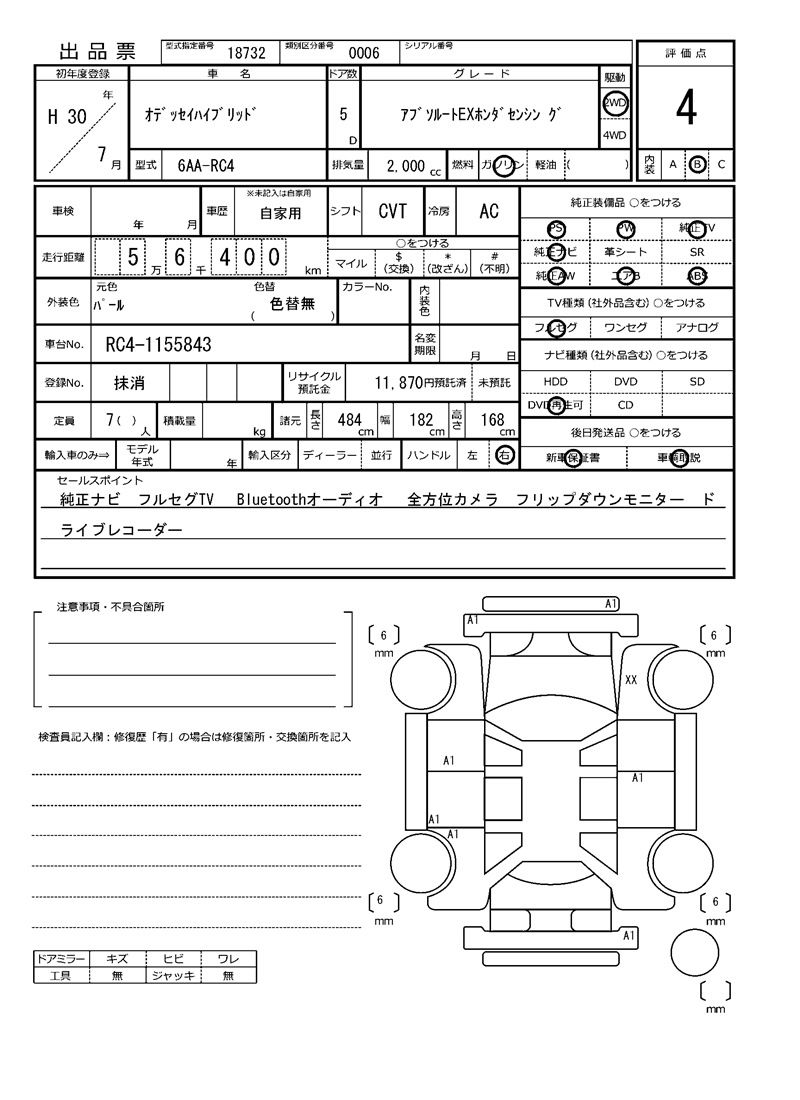 出品票 型式指定番号 18732 類別区分番号 0006 シリアル番号
評価点
4
内装 A B C
初年度登録 車 名 ドア数 グレード 駆動
H 30 年 7 月
ｵﾃﾞｯｾｲﾊｲﾌﾞﾘｯﾄﾞ 5 D ｱﾌﾞｿﾙｰﾄEXﾎﾝﾀﾞｾﾝｼﾝ ｸﾞ 2WD
4WD
型式 6AA-RC4 排気量 2.000 cc 燃料 ガソリン 軽油 ( )
車検 年 月 車歴 ※未記入は自家用 自家用 シフト CVT 冷房 AC
走行距離 5 万 6 千 4 0 0 km
○をつける
マイル $(交換) *(改ざん) #(不明)
外装色 元色 ﾊﾟｰﾙ 色替 色替無 ( ) カラーNo. 内装色
車台No. RC4-1155843 名変期限 月 日
登録No. 抹消 リサイクル預託金 11,870円預託済 未預託
定員 7( ) 人 積載量 kg 諸元 長さ 484 cm 幅 182 cm 高さ 168 cm
輸入車のみ⇒ モデル年式 年 輸入区分 ディーラー 並行 ハンドル 左 右
純正装備品 ○をつける
PS PW 純正TV
純正ナビ 革シート SR
純正AW エアB ABS
TV種類 (社外品含む) ○をつける
フルセグ ワンセグ アナログ
ナビ種類 (社外品含む) ○をつける
HDD DVD SD
DVD再生可 CD
後日発送品 ○をつける
新車保証書 車輌取説
セールスポイント
純正ナビ フルセグTV Bluetoothオーディオ 全方位カメラ フリップダウンモニター ド
ライブレコーダー
注意事項・不具合箇所
検査員記入欄：修復歴「有」の場合は修復箇所・交換箇所を記入
ドアミラー キズ ヒビ ワレ
工具 無 ジャッキ 無
A1
A1
6 mm
6 mm
XX
A1
A1
A1
A1
6 mm
6 mm
A1
mm